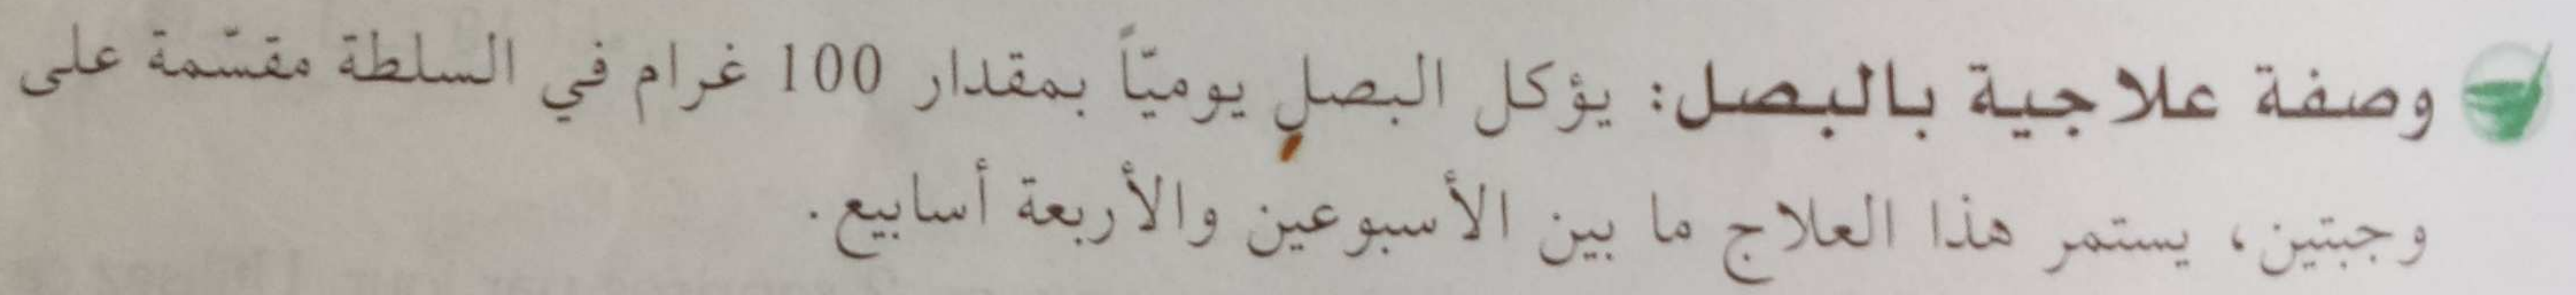 وصفة علاجية بالبصل: يؤكل البصل يوميّاً بمقدار 100 غرام في السلطة مقسّمة على
وجبتين، يستمر هذا العلاج ما بين الأسبوعين والأربعة أسابيع.